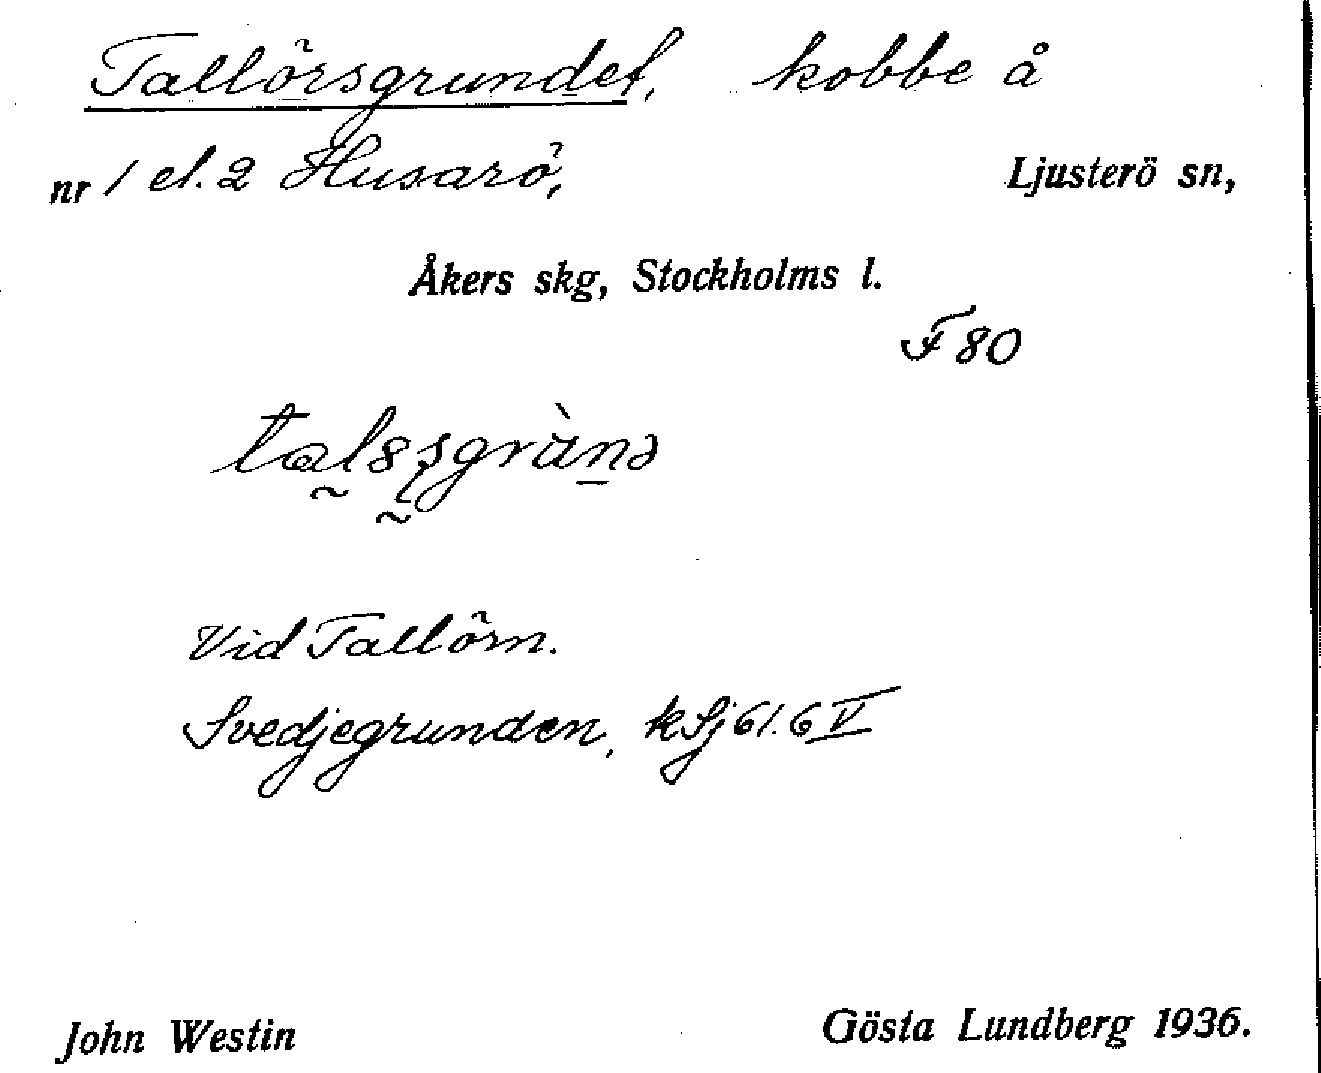 Tallörsgrundet, kobbe å
nr 1 el. 2 Husarö, Ljusterö sn,
Åkers skg, Stockholms l.
F 80
Vid Tallörn.
Svedjegrunden, kSj 61.6 V
John Westin Gösta Lundberg 1936.